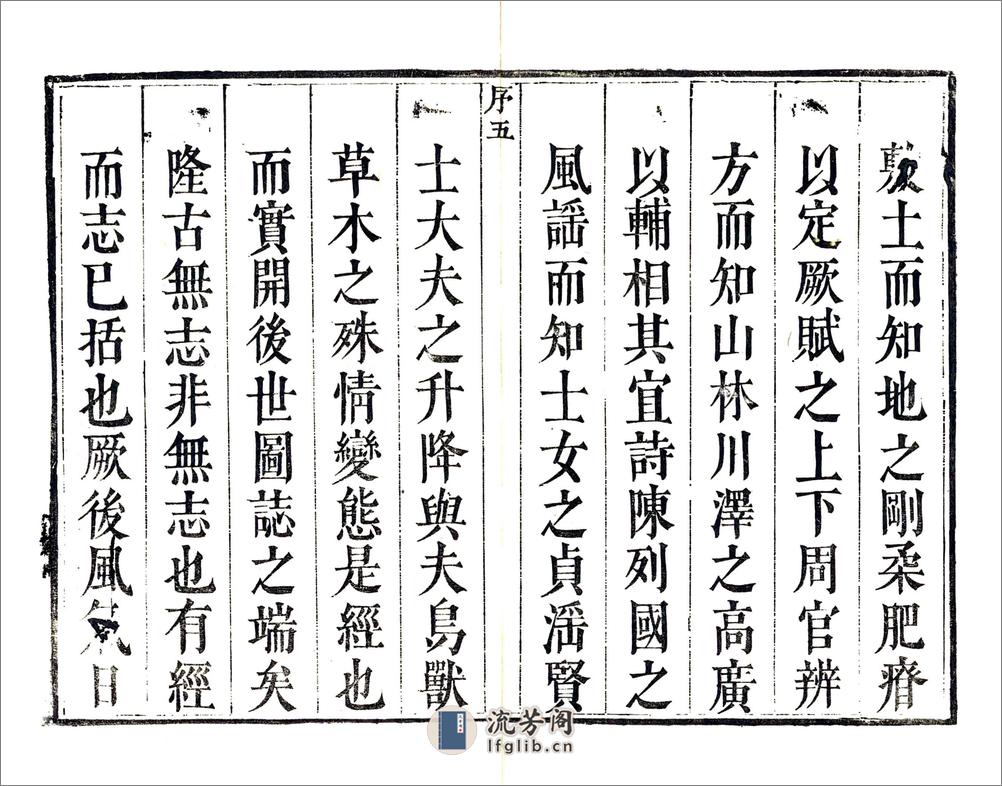 敷土而知地之剛柔肥瘠
以定厥賦之上下周官辨
方而知山林川澤之高廣
以輔相其宜詩陳列國之
風謡而知士女之貞淫賢
序五
士大夫之升降與夫鳥獸
草木之殊情變態是經也
而實開後世圖誌之端矣
隆古無志非無志也有經
而志已括也厥後風氣日
流芳阁
lfglib.cn